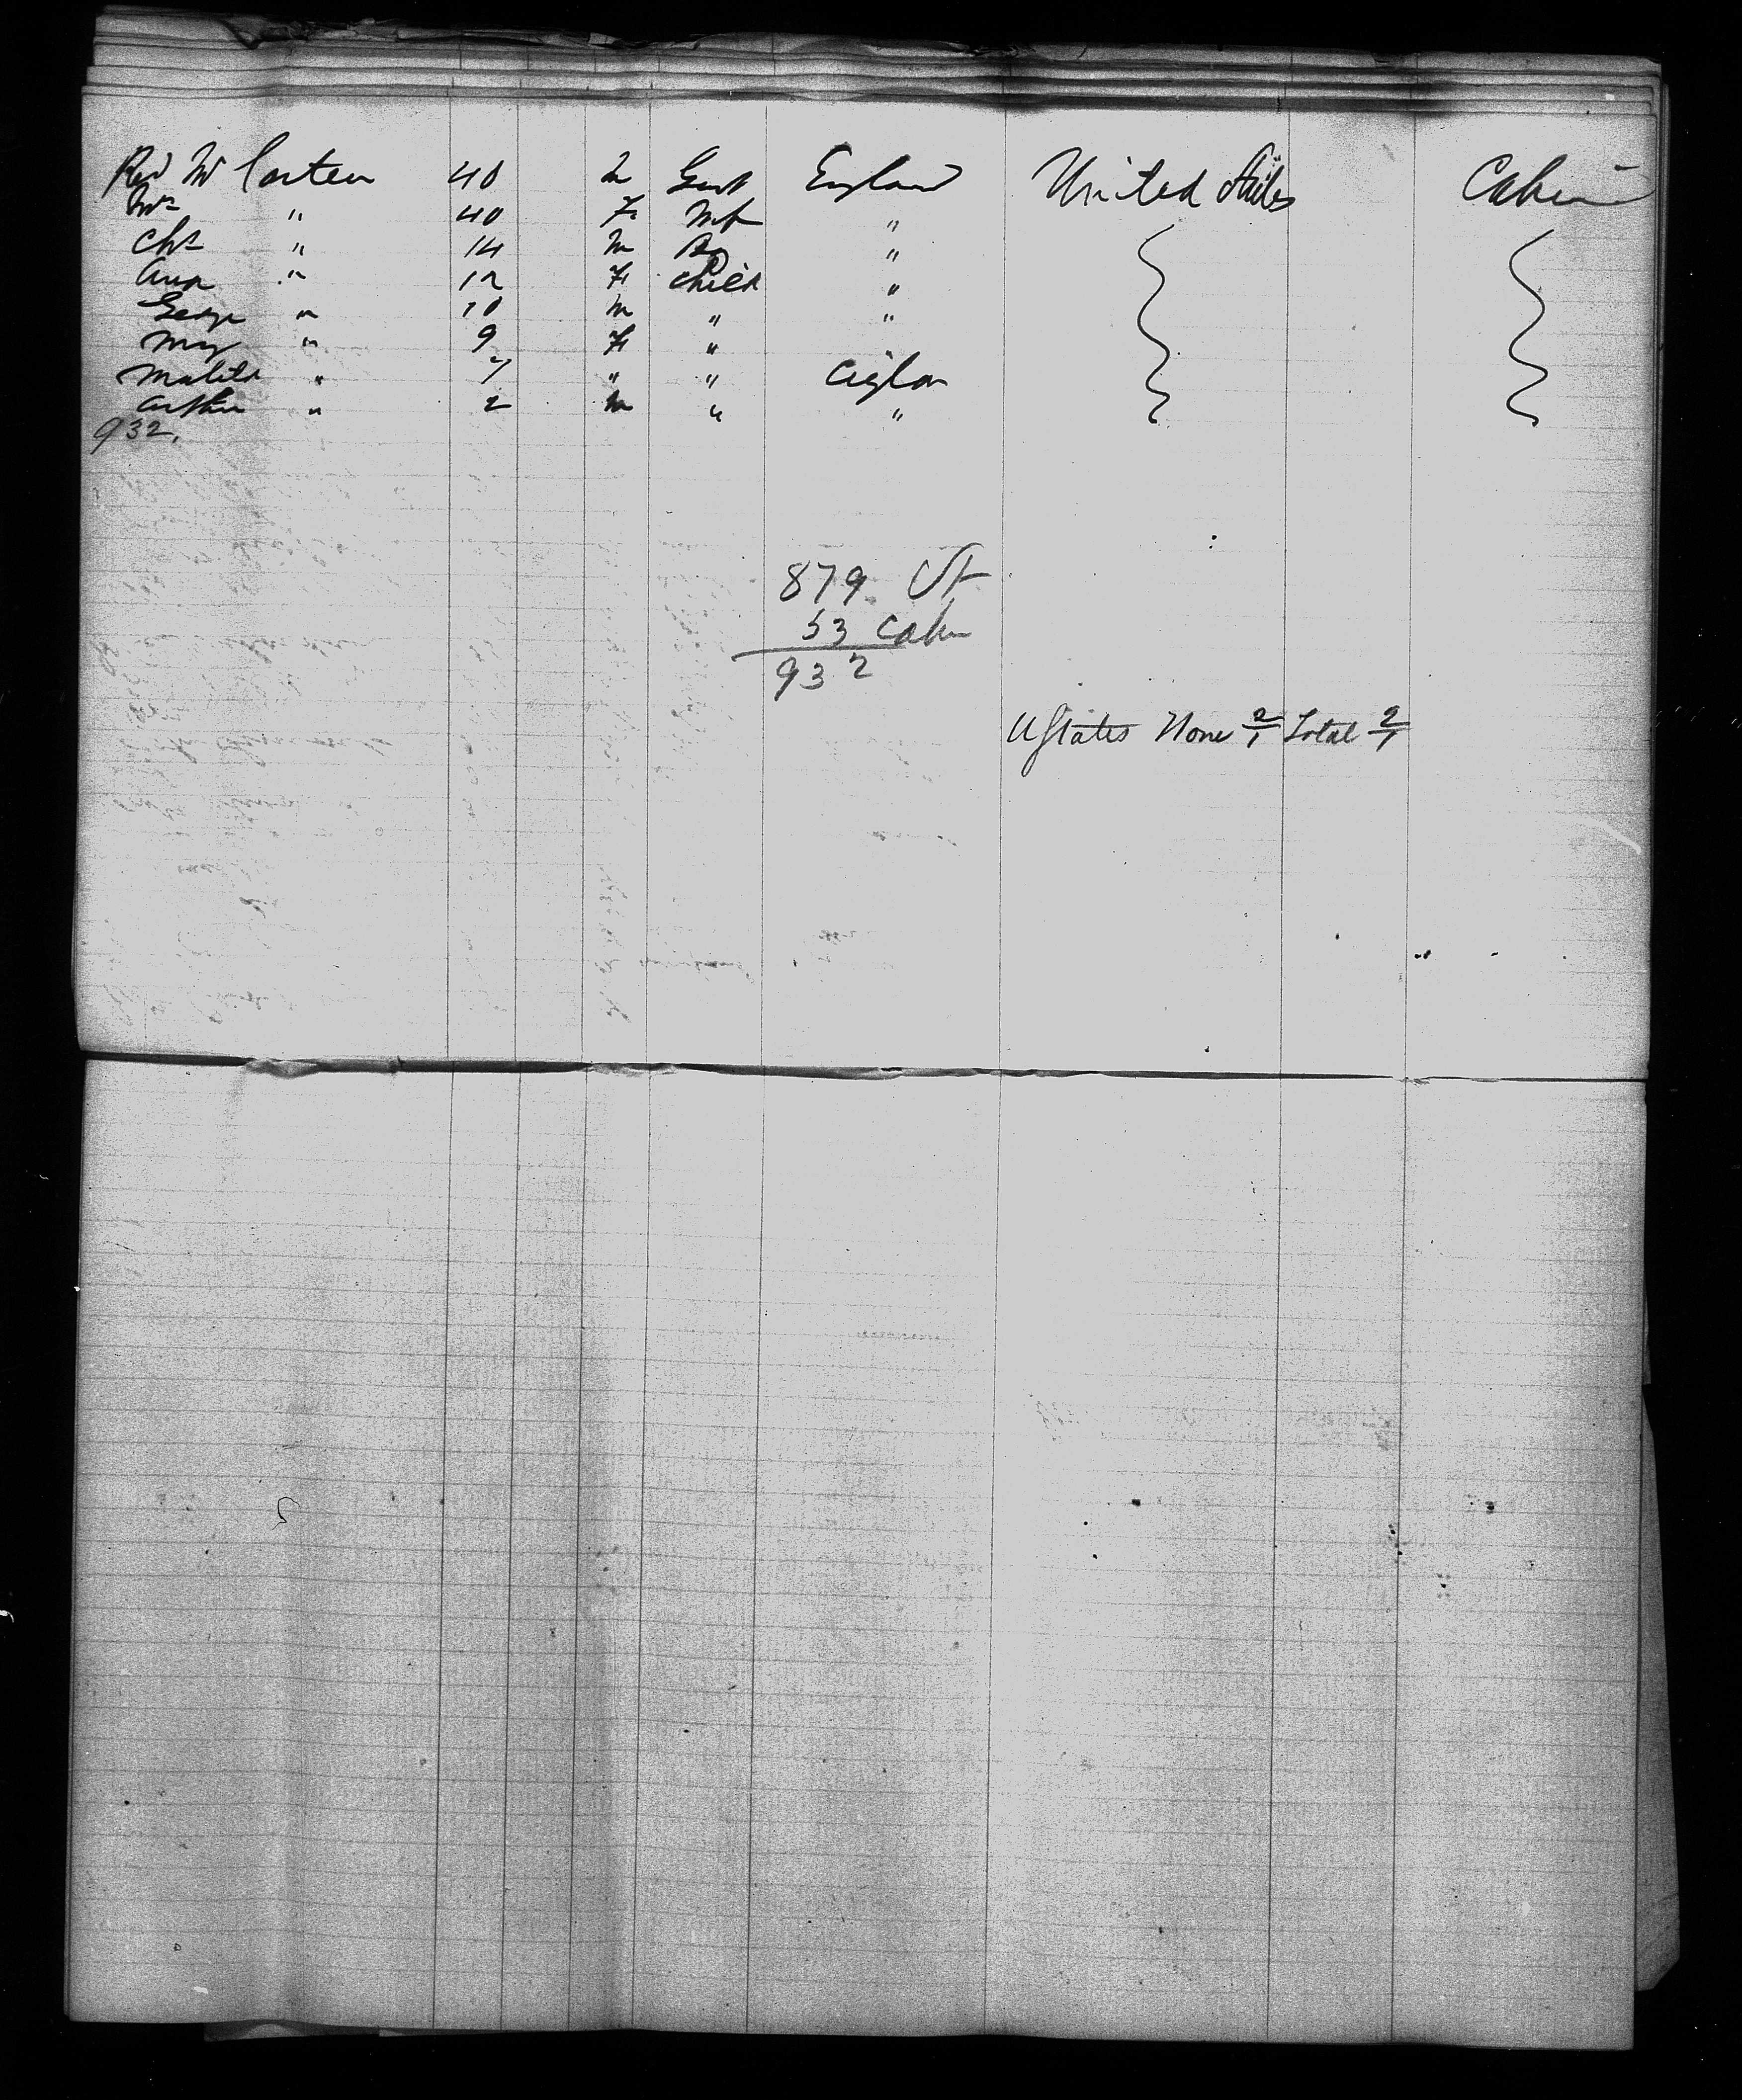 Revd Mr Carter 40 M Gent England United States Cabin
Mrs " 40 F Wife "
Chs " 14 M Boy "
Anna " 12 F Child "
George " 10 M " "
Mary " 9 F " "
Matilda " 7 " " Ceylon
Arthur " 2 M " "
932.
879 St
53 Cabin
932
UStates None 2/1 Total 2/1